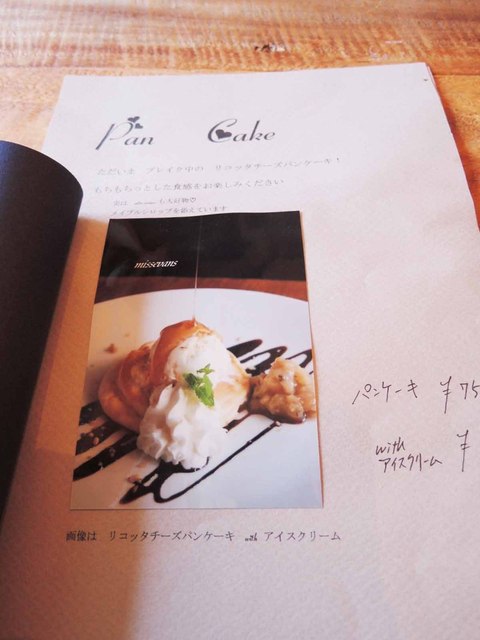 Pan Cake
ただいま ブレイク中の リコッタチーズパンケーキ！
もちもちっとした食感をお楽しみください
メイプルシロップを添えています
missevans
パンケーキ ¥75
with
アイスクリーム ¥
画像は リコッタチーズパンケーキ with アイスクリーム